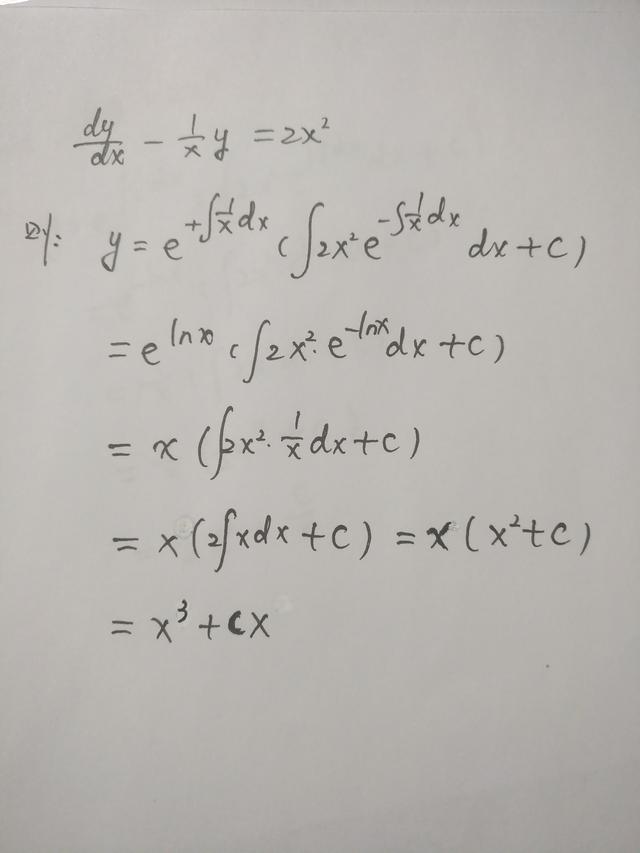 dy/dx - 1/x y = 2x²
则: y = e^{+∫1/x dx} (∫2x² e^{-∫1/x dx} dx + C)
= e^{ln x} (∫2x²·e^{-ln x} dx + C)
= x (∫2x²·1/x dx + C)
= x (2∫x dx + C) = x (x² + C)
= x³ + Cx